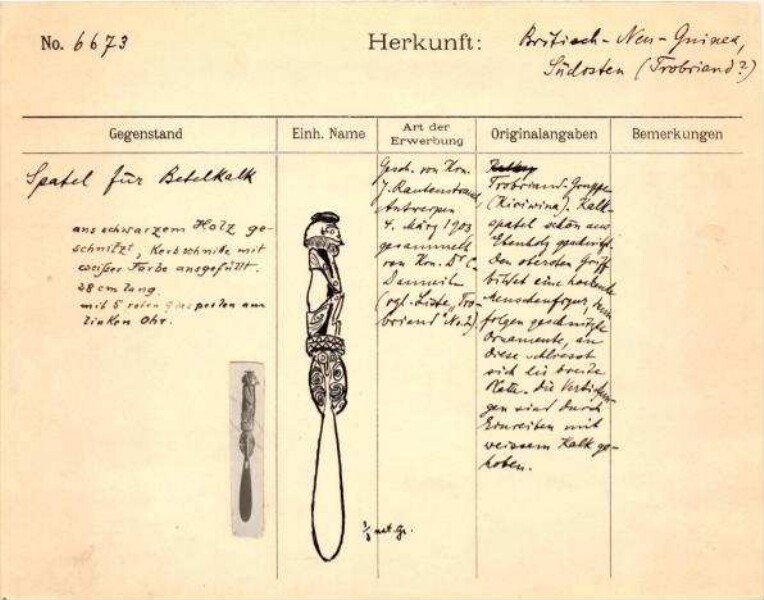 No. 6673
Herkunft:
Britisch-Neu-Guinea,
Südosten (Trobriand?)
Gegenstand
Einh. Name
Art der
Erwerbung
Originalangaben
Bemerkungen
Spatel für Betelkalk
aus schwarzem Holz ge-
schnitzt, Kerbschnitte mit
weißer Farbe ausgefüllt.
28 cm lang.
mit 5 roten Glasperlen am
linken Ohr.
Gesch. von Hrn.
J. Rautenstrauch,
Antwerpen
4. März 1903
gesammelt
von Hrn. Dr C.
(vgl. Liste „Tro-
briand" No. 2).
Trobriand-Gruppe
(Kiriwina). Kalk-
spatel schön aus
Ebenholz geschnitzt.
Den obersten Griff
bildet eine hockende
Menschenfigur, dann
folgen geschnitzte
Ornamente, an
diese schliesst
sich die breite
die Vertiefun-
gen sind durch
Einreiben mit
weissem Kalk ge-
hoben.
1/3 nat. Gr.